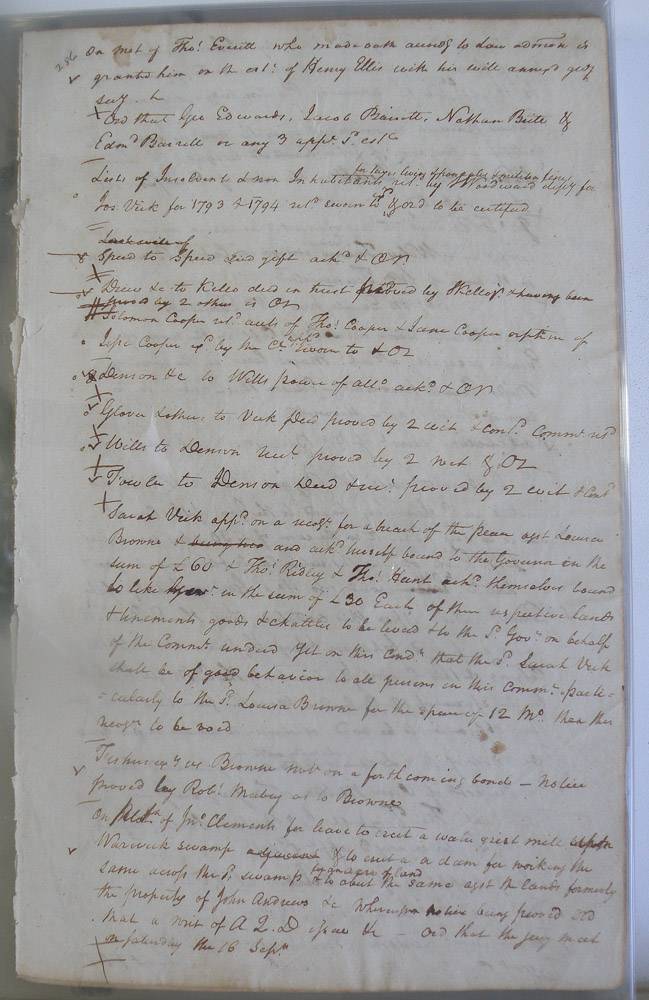 286
On mot of Thos. Everitt who made oath accordg to Law admon is
granted him on the est. of Henry Ellis with his will annex'd givg
secy
Ord that Geo Edwards, Jacob Barrett, Nathan Britt &
Edmd Barrett or any 3 appr. sd. est.
for taxes levies of property & militia fines
Lists of Insolvents & non Inhabitants retd. by Woodward depy for
Jos. Vick for 1793 & 1794 retd sworn to & ord to be certified
Speed to Speed Deed gift ackd & OR
Drew &c to Kello deed in trust proved by Kello & having been
proved by 2 others is OR
Solomon Cooper retd. accts of Thos. Cooper & Jane Cooper orphan of
Cooper by the sworn to & OR
Denson &c to Wills power of atto. ackd. & OR
Glover & others to Vick Deed proved by 2 wit & contd. Commn. retd
Wills to Denson proved by 2 wit & OR
Fowler to Denson Deed & rect. proved by 2 wit & Contd
Sarah Vick appd. on a recogn. for a breach of the peace agst Louisa
Browne & and ackd. herself bound to the Governor in the
sum of £60 & Thos. Ridley & Thos. Hunt ackd. themselves bound
to like Govr. in the sum of £30 Each of their respective lands
& tenements goods & chattles to be levied & to the sd. Govr. on behalf
of the Commn. rendered yet on this condn that the sd. Sarah Vick
shall be of good behavior to all persons in this Commn. parti=
=cularly to the sd. Louisa Browne for the space of 12 Mo. then this
recogn to be void
vs Browne mot on a forthcoming bond — Notice
proved by Robt. Mabry as to Browne
On Petn of Jno. Clements for leave to erect a water grist mill upon
Warwick swamp adjacent & to erect a dam for working the
to an acre of land
same across the sd. swamp & to abut the same agst the lands formerly
the property of John Andrews &c Whereupon notice being proved Ord
that a writ of A Q. D issue &c — Ord that the jury meet
on Saturday the 16 Sepr.